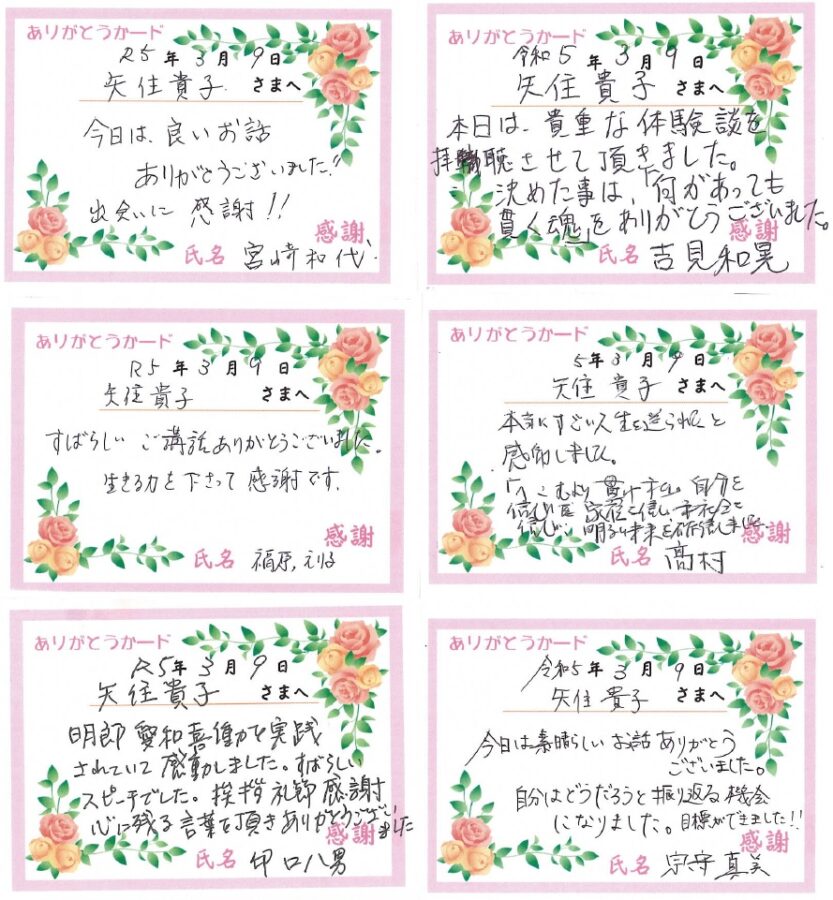 ありがとうカード
R5年3月9日
矢住貴子 さまへ
今日は、良いお話
ありがとうございました!!
出会いに 感謝!!
感謝
氏名 宮崎和代
ありがとうカード
令和5年3月9日
矢住貴子 さまへ
本日は、貴重な体験談を
拝聴させて頂きました。
決めた事は、「何があっても
貫く魂」をありがとうございました。
感謝
氏名 吉見和晃
ありがとうカード
R5年3月9日
矢住貴子 さまへ
すばらしい ご講話ありがとうございました。
生きる力を下さって 感謝です。
感謝
氏名 福原, えりる
ありがとうカード
5年3月9日
矢住貴子 さまへ
本当にすごい人生を送られたと
感動しました。
自分を
信じ
信じ、明るい未来を
感謝
氏名 髙村
ありがとうカード
R5年3月9日
矢住貴子 さまへ
明朗 愛和 喜働を実践
されていて 感動しました。すばらしい
スピーチでした。挨拶 礼節 感謝
心に残る言葉を頂きありがとうございました
感謝
氏名 印口八男
ありがとうカード
令和5年3月9日
矢住貴子 さまへ
今日は素晴らしい お話 ありがとう
ございました。
自分はどうだろうと振り返る機会
になりました。目標ができました!!
感謝
氏名 宗守真美